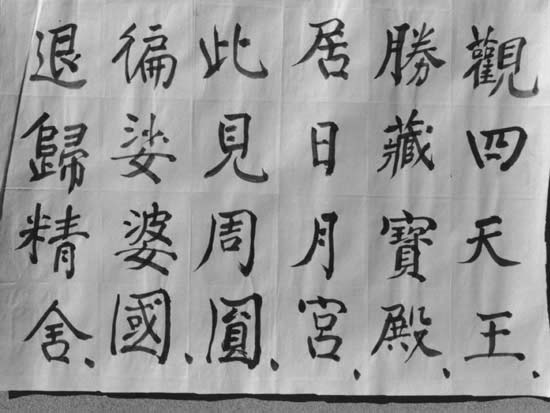 觀四天王、
勝藏寶殿、
居日月宮、
此見周圓、
徧娑婆國、
退歸精舍、